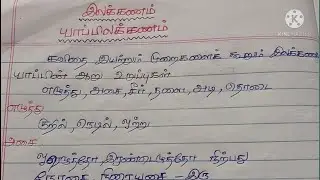 இலக்கணம்
யாப்பிலக்கணம்
கவிதை இயற்றும் முறைகளைக் கூறும் இலக்கணம்
யாப்பின் ஆறு உறுப்புகள்
எழுத்து, அசை, சீர், தளை, அடி, தொடை
எழுத்து
குறில், நெடில், ஒற்று
அசை
ஓரெழுத்தோ, இரண்டெழுத்தோ நிற்பது
நேரசை நிரையசை - இரு